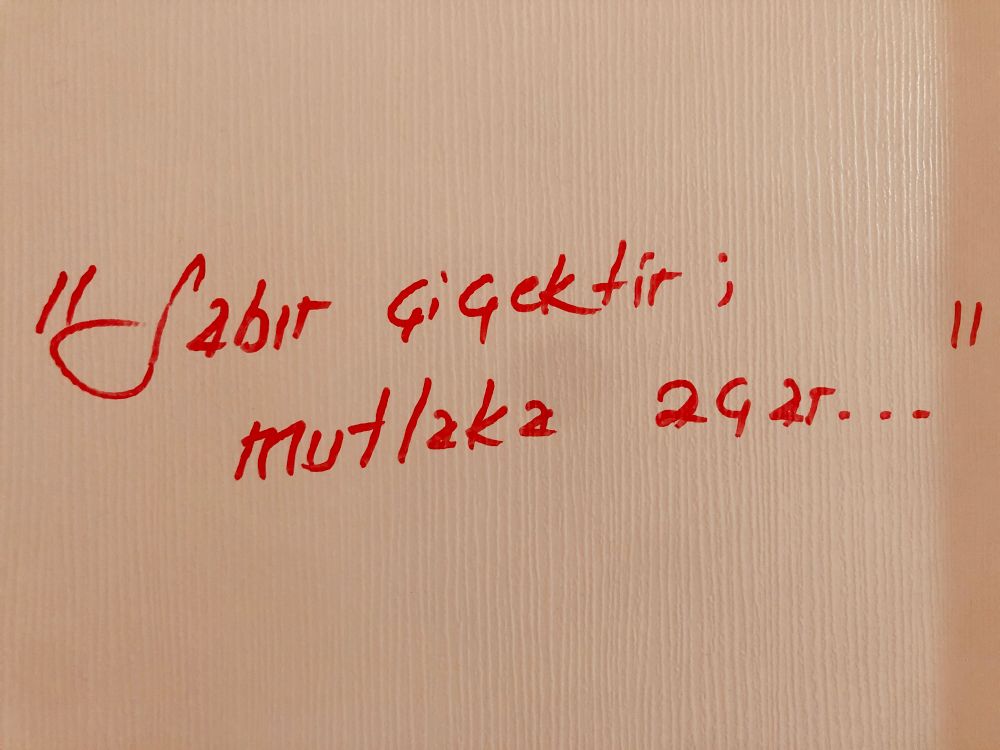 "Sabır çiçektir;
mutlaka açar..."